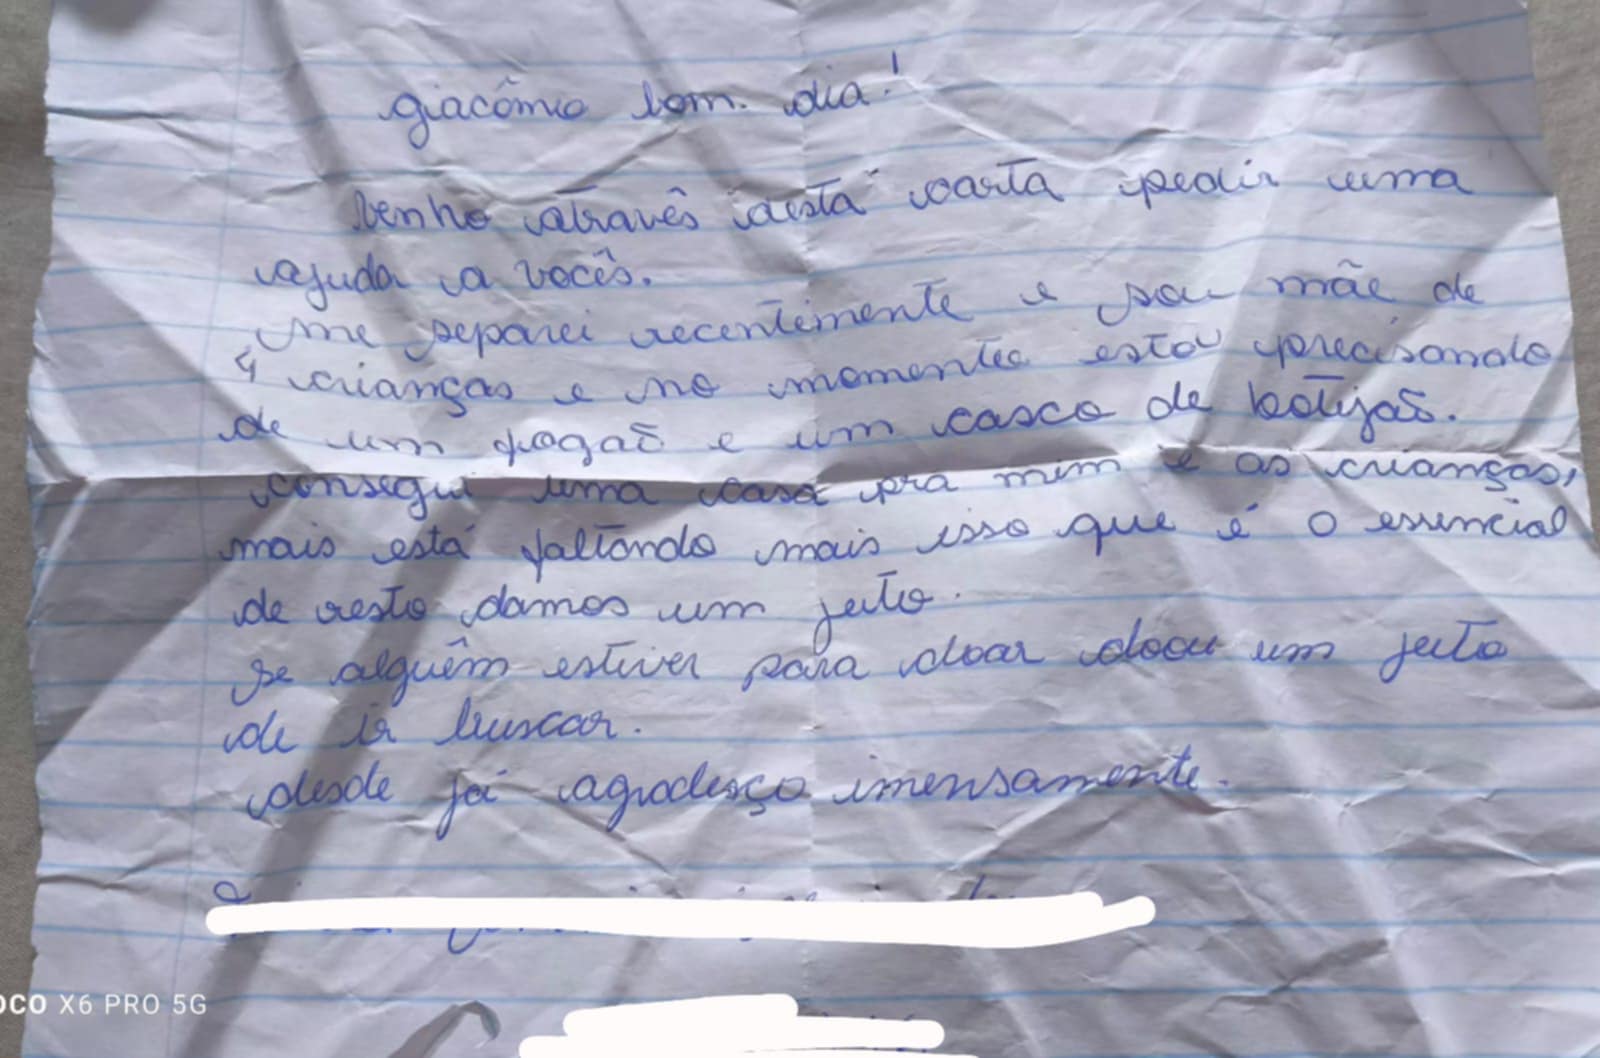 giacômo bom. dia!
Venho atravês desta carta pedir uma
ajuda a vocês.
me separei recentemente e sou mãe de
4 crianças e no momento estou precisando
de um fogaõ e um casco de botijaõ.
consegui uma casa pra mim e as crianças,
mais está faltando mais isso que é o essencial
de resto damos um jeito.
se alguêm estiver para doar dou um jeito
de ir buscar.
desde já agradesço imensamente.
OCO X6 PRO 5G